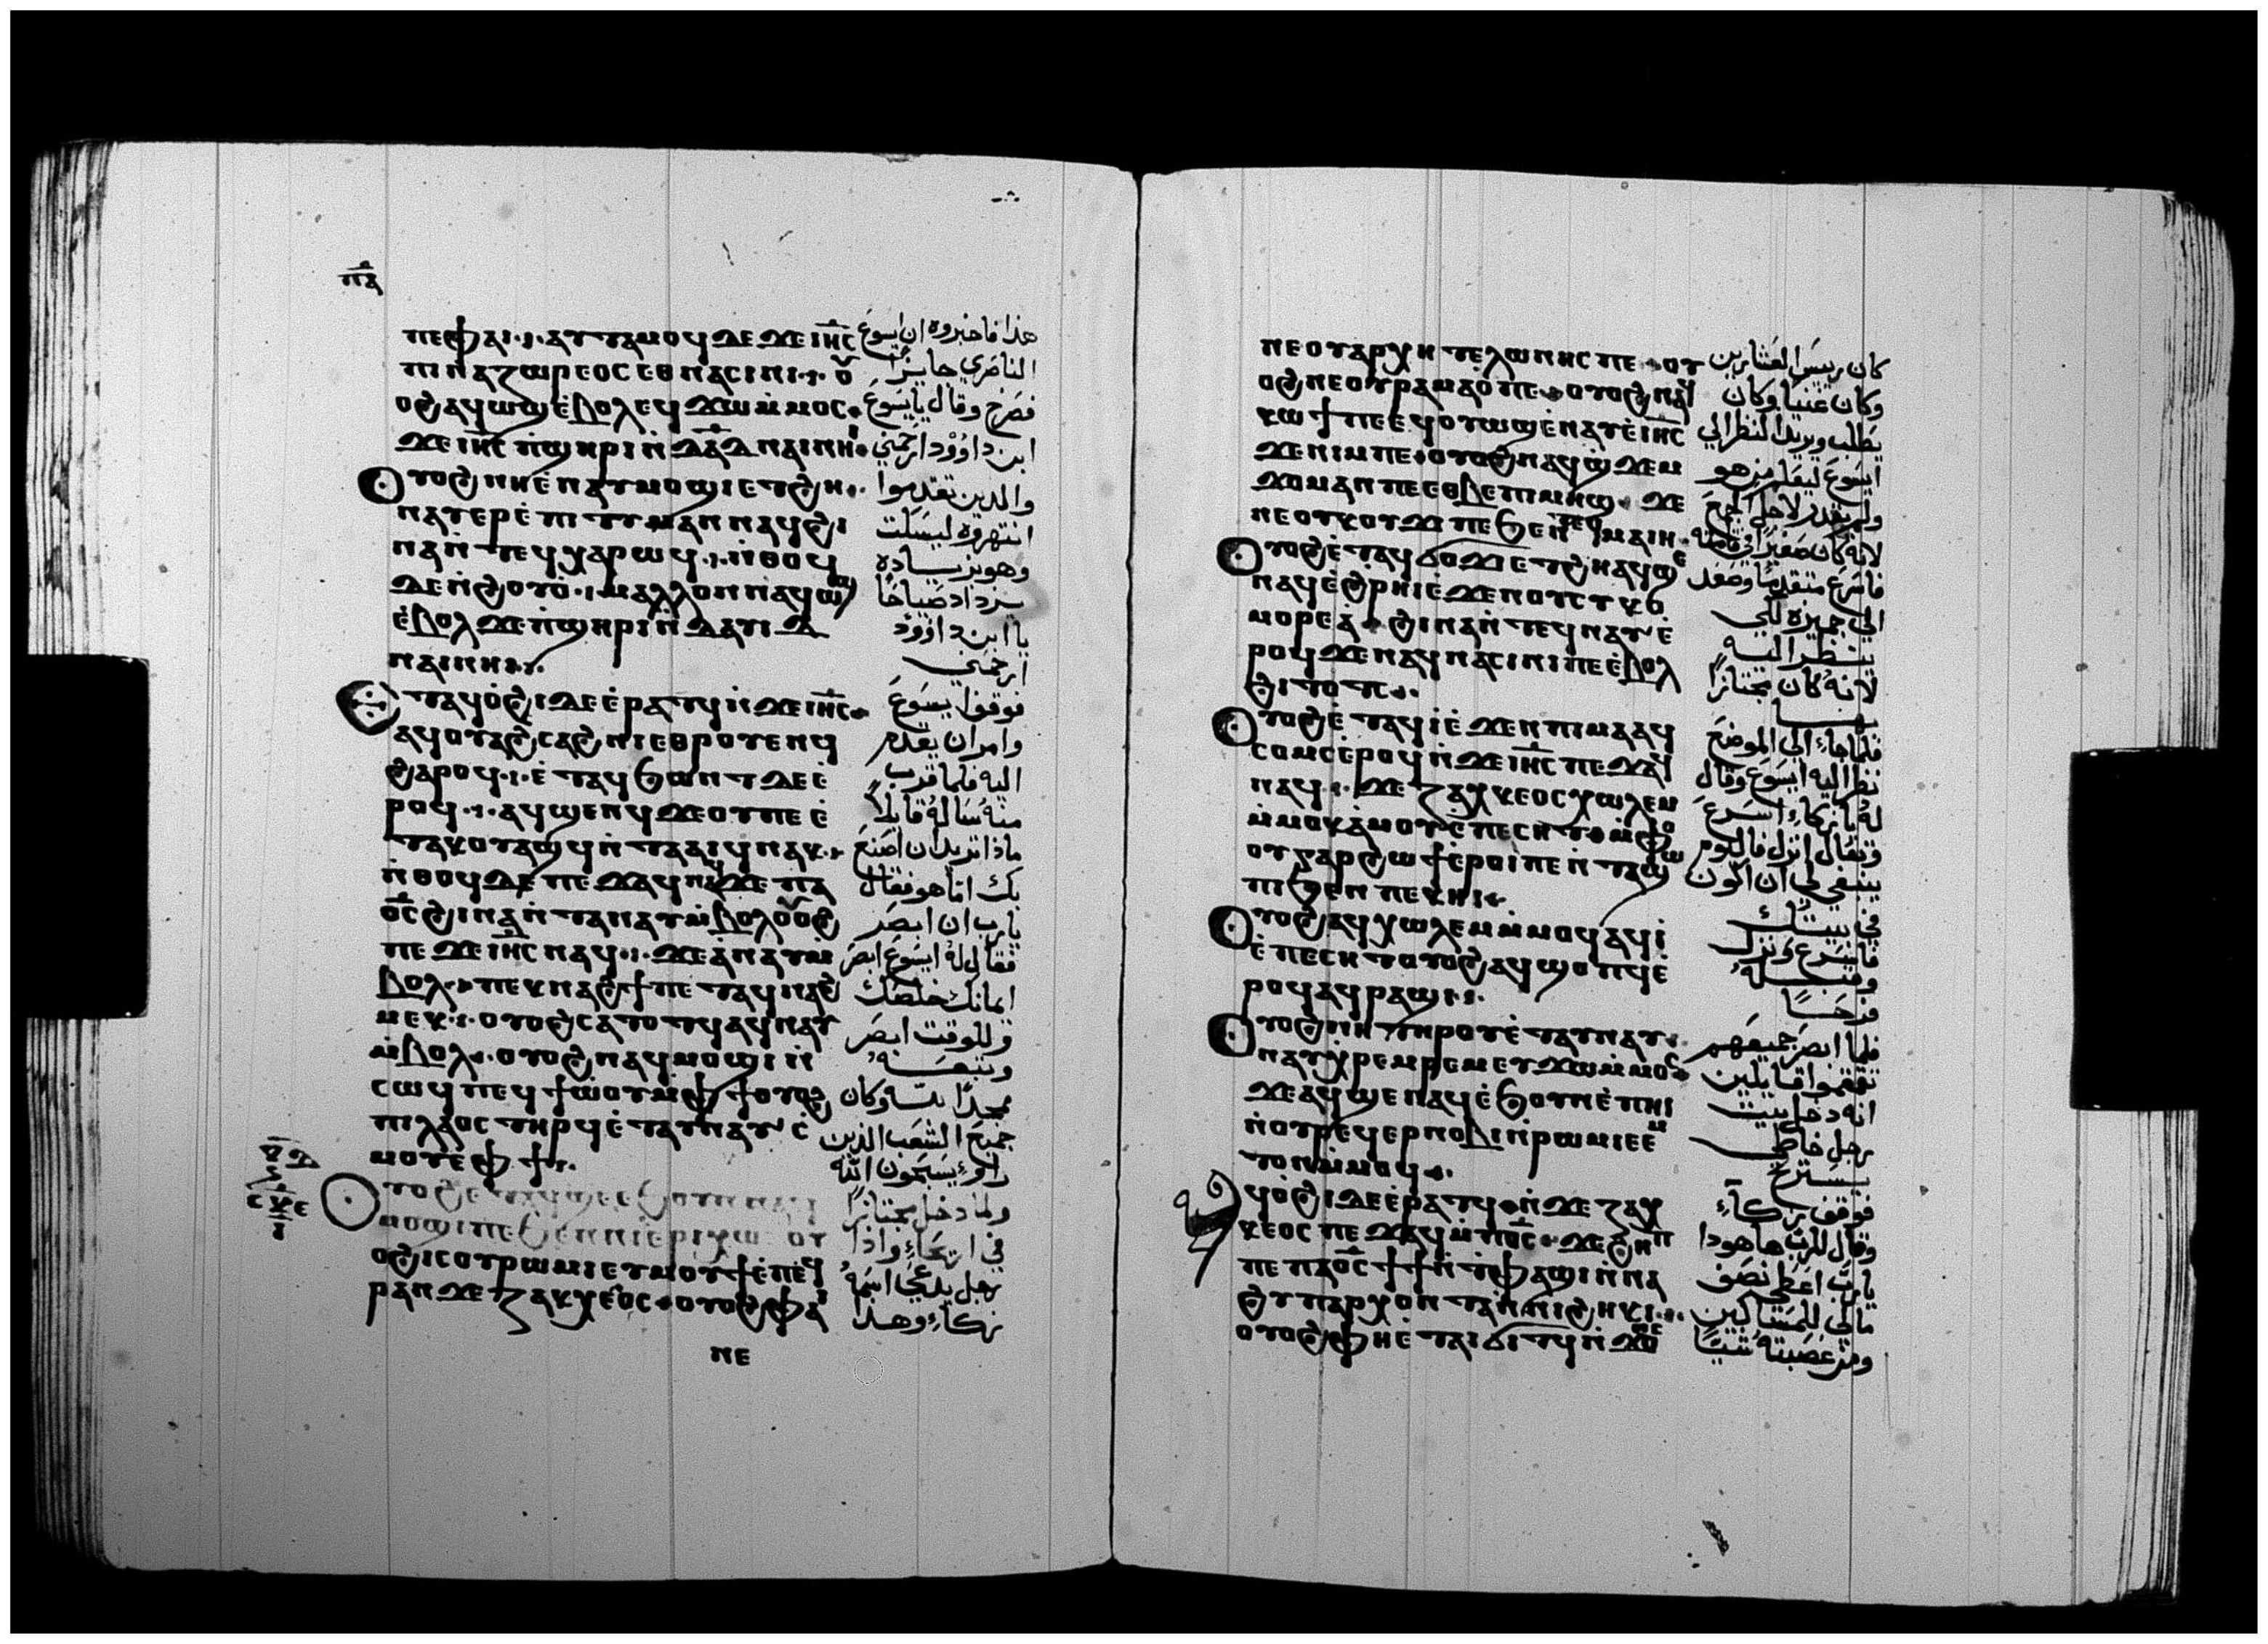 ⲡ̅ⲇ̅
ⲡⲉ ⲫⲁⲓ ⲁⲩⲧⲁⲙⲟϥ ⲇⲉ ϫⲉ ⲓⲏⲥ
ⲡⲓⲛⲁⲍⲱⲣⲉⲟⲥ ⲉⲑⲛⲁⲥⲓⲛⲓ ⲟⲩ
ⲟϩ ⲁϥⲱϣ ⲉ̀ⲃⲟⲗ ⲉϥϫⲱ ⲙ̀ⲙⲟⲥ
ϫⲉ ⲓⲏⲥ ⲡ̀ϣⲏⲣⲓ ⲛ̀ⲇⲁⲇ ⲛⲁⲓ ⲛⲏⲓ
Ⲟⲩⲟϩ ⲛⲏ ⲉ̀ⲛⲁⲩⲙⲟϣⲓ ⲉⲧϩⲏ
ⲛⲁⲩⲉⲣⲉ̀ⲡⲓⲧⲓⲙⲁⲛ ⲛⲁϥ ϩⲓ
ⲛⲁ ⲛ̀ⲧⲉϥⲭⲁⲣⲱϥ ⲛ̀ⲑⲟϥ
ⲇⲉ ⲛ̀ϩⲟⲩⲟ̀ ⲙⲁⲗⲗⲟⲛ ⲛⲁϥⲱϣ
ⲉ̀ⲃⲟⲗ ϫⲉ ⲡ̀ϣⲏⲣⲓ ⲛ̀ⲇⲁⲩⲓⲇ
ⲛⲁⲓ ⲛⲏⲓ
Ⲉⲧⲁϥⲟ̀ϩⲓ ⲇⲉ ⲉ̀ⲣⲁⲧϥ ⲛ̀ϫⲉ ⲓⲏⲥ
ⲁϥⲟⲩⲁϩⲥⲁϩⲛⲓ ⲉⲑⲣⲟⲩⲉⲛϥ
ϩⲁⲣⲟϥ ⲉ̀ⲧⲁϥϧⲱⲛⲧ ⲇⲉ ⲉ̀
ⲣⲟϥ ⲁϥϣⲉⲛϥ ϫⲉ ⲟⲩ ⲡⲉ ⲉ̀
ⲧⲁⲕⲟⲩⲁϣϥ ⲛ̀ⲧⲁⲁⲓϥ ⲛⲁⲕ
ⲛ̀ⲑⲟϥ ⲇⲉ ⲡⲉϫⲁϥ ⲛⲁϥ ϫⲉ ⲡⲁ
ⲟ̅ⲥ̅ ϩⲓⲛⲁ ⲛ̀ⲧⲁⲛⲁⲩ ⲙ̀ⲃⲟⲗ ⲟⲩⲟϩ
ⲡⲉϫⲉ ⲓⲏⲥ ⲛⲁϥ ϫⲉ ⲁ̀ⲛⲁⲩ ⲙ̀
ⲃⲟⲗ ⲡⲉⲕⲛⲁϩϯ ⲡⲉⲧⲁϥⲛⲁϩ
ⲙⲉⲕ ⲟⲩⲟϩ ⲥⲁⲧⲟⲧϥ ⲁϥⲛⲁⲩ
ⲙ̀ⲃⲟⲗ ⲟⲩⲟϩ ⲛⲁϥⲙⲟϣⲓ ⲛ̀
ⲥⲱϥ ⲡⲉ ⲉϥϯⲱ̀ⲟⲩ ⲙ̀ⲫϯ ⲟⲩⲟϩ
ⲡⲓⲗⲁⲟⲥ ⲧⲏⲣϥ ⲉ̀ⲧⲁⲩⲛⲁⲩ ⲥ̀
ⲙⲟⲩ ⲉ̀ⲫϯ
Ⲟⲩⲟϩ ⲉⲧⲁϥϣⲉ ⲉϧⲟⲩⲛ ⲛⲁϥ
ⲙⲟϣⲓ ⲡⲉ ϧⲉⲛ ⲓⲉⲣⲓⲭⲱ ⲟⲩ
ⲟϩ ⲓⲥ ⲟⲩⲣⲱⲙⲓ ⲉⲩⲙⲟⲩϯ ⲉ̀ⲡⲉϥ
ⲣⲁⲛ ϫⲉ ⲍⲁⲕⲭⲉⲟⲥ ⲟⲩⲟϩ ⲫⲁⲓ
ⲛⲉ
هذا فاخبروه ان ايسوع
الناصري جايزًا
فصرخ وقال يا يسوع
ابن داوود ارحمني
والدين تقدموا
انتهروه ليسكت
وهو بزياده
يزداد صياحًا
يا ابن داوود
ارحمني
فوقف ايسوع
وامر ان يقدم
اليه فلما قرب
منه سأله قايلاً
ماذا تريد ان اصنع
بك اما هو فقال
يارب ان ابصر
فقال له ايسوع ابصر
ايمانك خلصك
وللوقت ابصر
وتبعه
ممجدًا لله وكان
جميع الشعب الذين
راوه يسبحون الله
ولما دخل مجتازًا
في اريحاء واذا
رجل يدعى اسمه
زكاء وهدا
ⲛⲉ ⲟⲩⲁⲣⲭⲏⲧⲉⲗⲱⲛⲏⲥ ⲡⲉ ⲟⲩ
ⲟϩ ⲛⲉ ⲟⲩⲣⲁⲙⲁⲟ̀ ⲡⲉ ⲟⲩⲟϩ ⲛⲁϥ
ⲕⲱϯ ⲡⲉ ⲉϥⲟⲩⲱϣ ⲉ̀ⲛⲁⲩ ⲉ̀ⲓⲏⲥ
ϫⲉ ⲛⲓⲙ ⲡⲉ ⲟⲩⲟϩ ⲛⲁϥϣ̀ϫⲉⲙ
ϫⲟⲙ ⲁⲛ ⲡⲉ ⲉⲑⲃⲉ ⲡⲓⲙⲏϣ ϫⲉ
ⲛⲉ ⲟⲩⲕⲟⲩϫⲓ ⲡⲉ ϧⲉⲛ ⲧⲉϥⲙⲁⲓⲏ
Ⲟⲩⲟϩ ⲉ̀ⲧⲁϥϭⲟϫⲓ ⲉⲧϩⲏ ⲁϥϣⲉ
ⲛⲁϥ ⲉ̀ϩⲣⲏⲓ ⲉ̀ϫⲉⲛ ⲟⲩⲥⲩⲕⲟ
ⲙⲟⲣⲉⲁ̀ ϩⲓⲛⲁ ⲛ̀ⲧⲉϥⲛⲁⲩ ⲉ̀
ⲣⲟϥ ϫⲉ ⲛⲁϥⲛⲁⲥⲓⲛⲓ ⲡⲉ ⲉ̀ⲃⲟⲗ
ϩⲓⲧⲟⲧⲥ
Ⲟⲩⲟϩ ⲉ̀ⲧⲁϥⲓ̀ ⲉ̀ϫⲉⲛ ⲡⲓⲙⲁ ⲁϥ
ⲥⲟⲙⲥ ⲉ̀ⲣⲟϥ ⲛ̀ϫⲉ ⲓⲏⲥ ⲡⲉϫⲁϥ
ⲛⲁϥ ϫⲉ ⲍⲁⲕⲭⲉⲟⲥ ⲭⲱⲗⲉⲙ
ⲙ̀ⲙⲟⲕ ⲁ̀ⲙⲟⲩ ⲉ̀ⲡⲉⲥⲏⲧ ⲙ̀ⲫⲟ
ⲟⲩ ⲅⲁⲣ ϩⲱϯ ⲉ̀ⲣⲟⲓ ⲡⲉ ⲛ̀ⲧⲁϣⲱ
ⲡⲓ ϧⲉⲛ ⲡⲉⲕⲏⲓ
Ⲟⲩⲟϩ ⲁϥⲭⲱⲗⲉⲙ ⲙ̀ⲙⲟϥ ⲁϥⲓ̀
ⲉ̀ⲡⲉⲥⲏⲧ ⲟⲩⲟϩ ⲁϥϣⲟⲡϥ ⲉ̀
ⲣⲟϥ ⲁϥⲣⲁϣⲓ
Ⲟⲩⲟϩ ⲛⲏ ⲧⲏⲣⲟⲩ ⲉ̀ⲧⲁⲩⲛⲁⲩ
ⲛⲁⲩⲭ̀ⲣⲉⲙⲣⲉⲙ ⲉⲩϫⲱ ⲙ̀ⲙⲟⲥ
ϫⲉ ⲁϥϣⲉ ⲛⲁϥ ⲉ̀ϧⲟⲩⲛ ⲉ̀ⲡⲏⲓ
ⲛ̀ⲟⲩⲣⲉϥⲉⲣⲛⲟⲃⲓ ⲛ̀ⲣⲱⲙⲓ ⲉⲉⲙ
ⲧⲟⲛ ⲙ̀ⲙⲟϥ
ϥⲟ̀ϩⲓ ⲇⲉ ⲉ̀ⲣⲁⲧϥ ⲛ̀ϫⲉ ⲍⲁⲕ
ⲭⲉⲟⲥ ⲡⲉϫⲁϥ ⲙ̀ⲡⲟ̅ⲥ̅ ϫⲉ ϩⲏⲡ
ⲡⲉ ⲡⲁⲟ̅ⲥ̅ ϯϯ ⲛ̀ⲧ̀ⲫⲁϣⲓ ⲛ̀ⲛⲁ
ϩⲩⲡⲁⲣⲭⲟⲛⲧⲁ ⲛ̀ⲛⲓϩⲏⲕⲓ
ⲟⲩⲟϩ ⲫⲏ ⲉ̀ⲧⲁⲓϭⲓⲧϥ ⲛ̀ϫⲟⲛⲥ
كان ريس العشارين
وكان غنيا وكان
يطلب ويريد النظر الي
ايسوع ليعلم من هو
ولم يقدر لاجل الجمع
لانه كان صغيرًا في قامته
فاسرع متقدمًا وصعد
الى جميزه لكي
ينظر اليه
لانه كان مجتازًا
بها
فلما جاء الى الموضع
نظر اليه ايسوع وقال
له يا زكاء اسرع
وتعال انزل فاليوم
ينبغي لي ان اكون
في بيتك
فاسرع ونزل
وقبله
فرحًا
فلما ابصر جميعهم
تقمقموا قايلين
انه دخل بيت
رجل خاطي
يستريح
فوقف زكاء
وقال للرب هاهودا
يارب اعطي نصف
مالي للمساكين
ومن غصبته شيًا